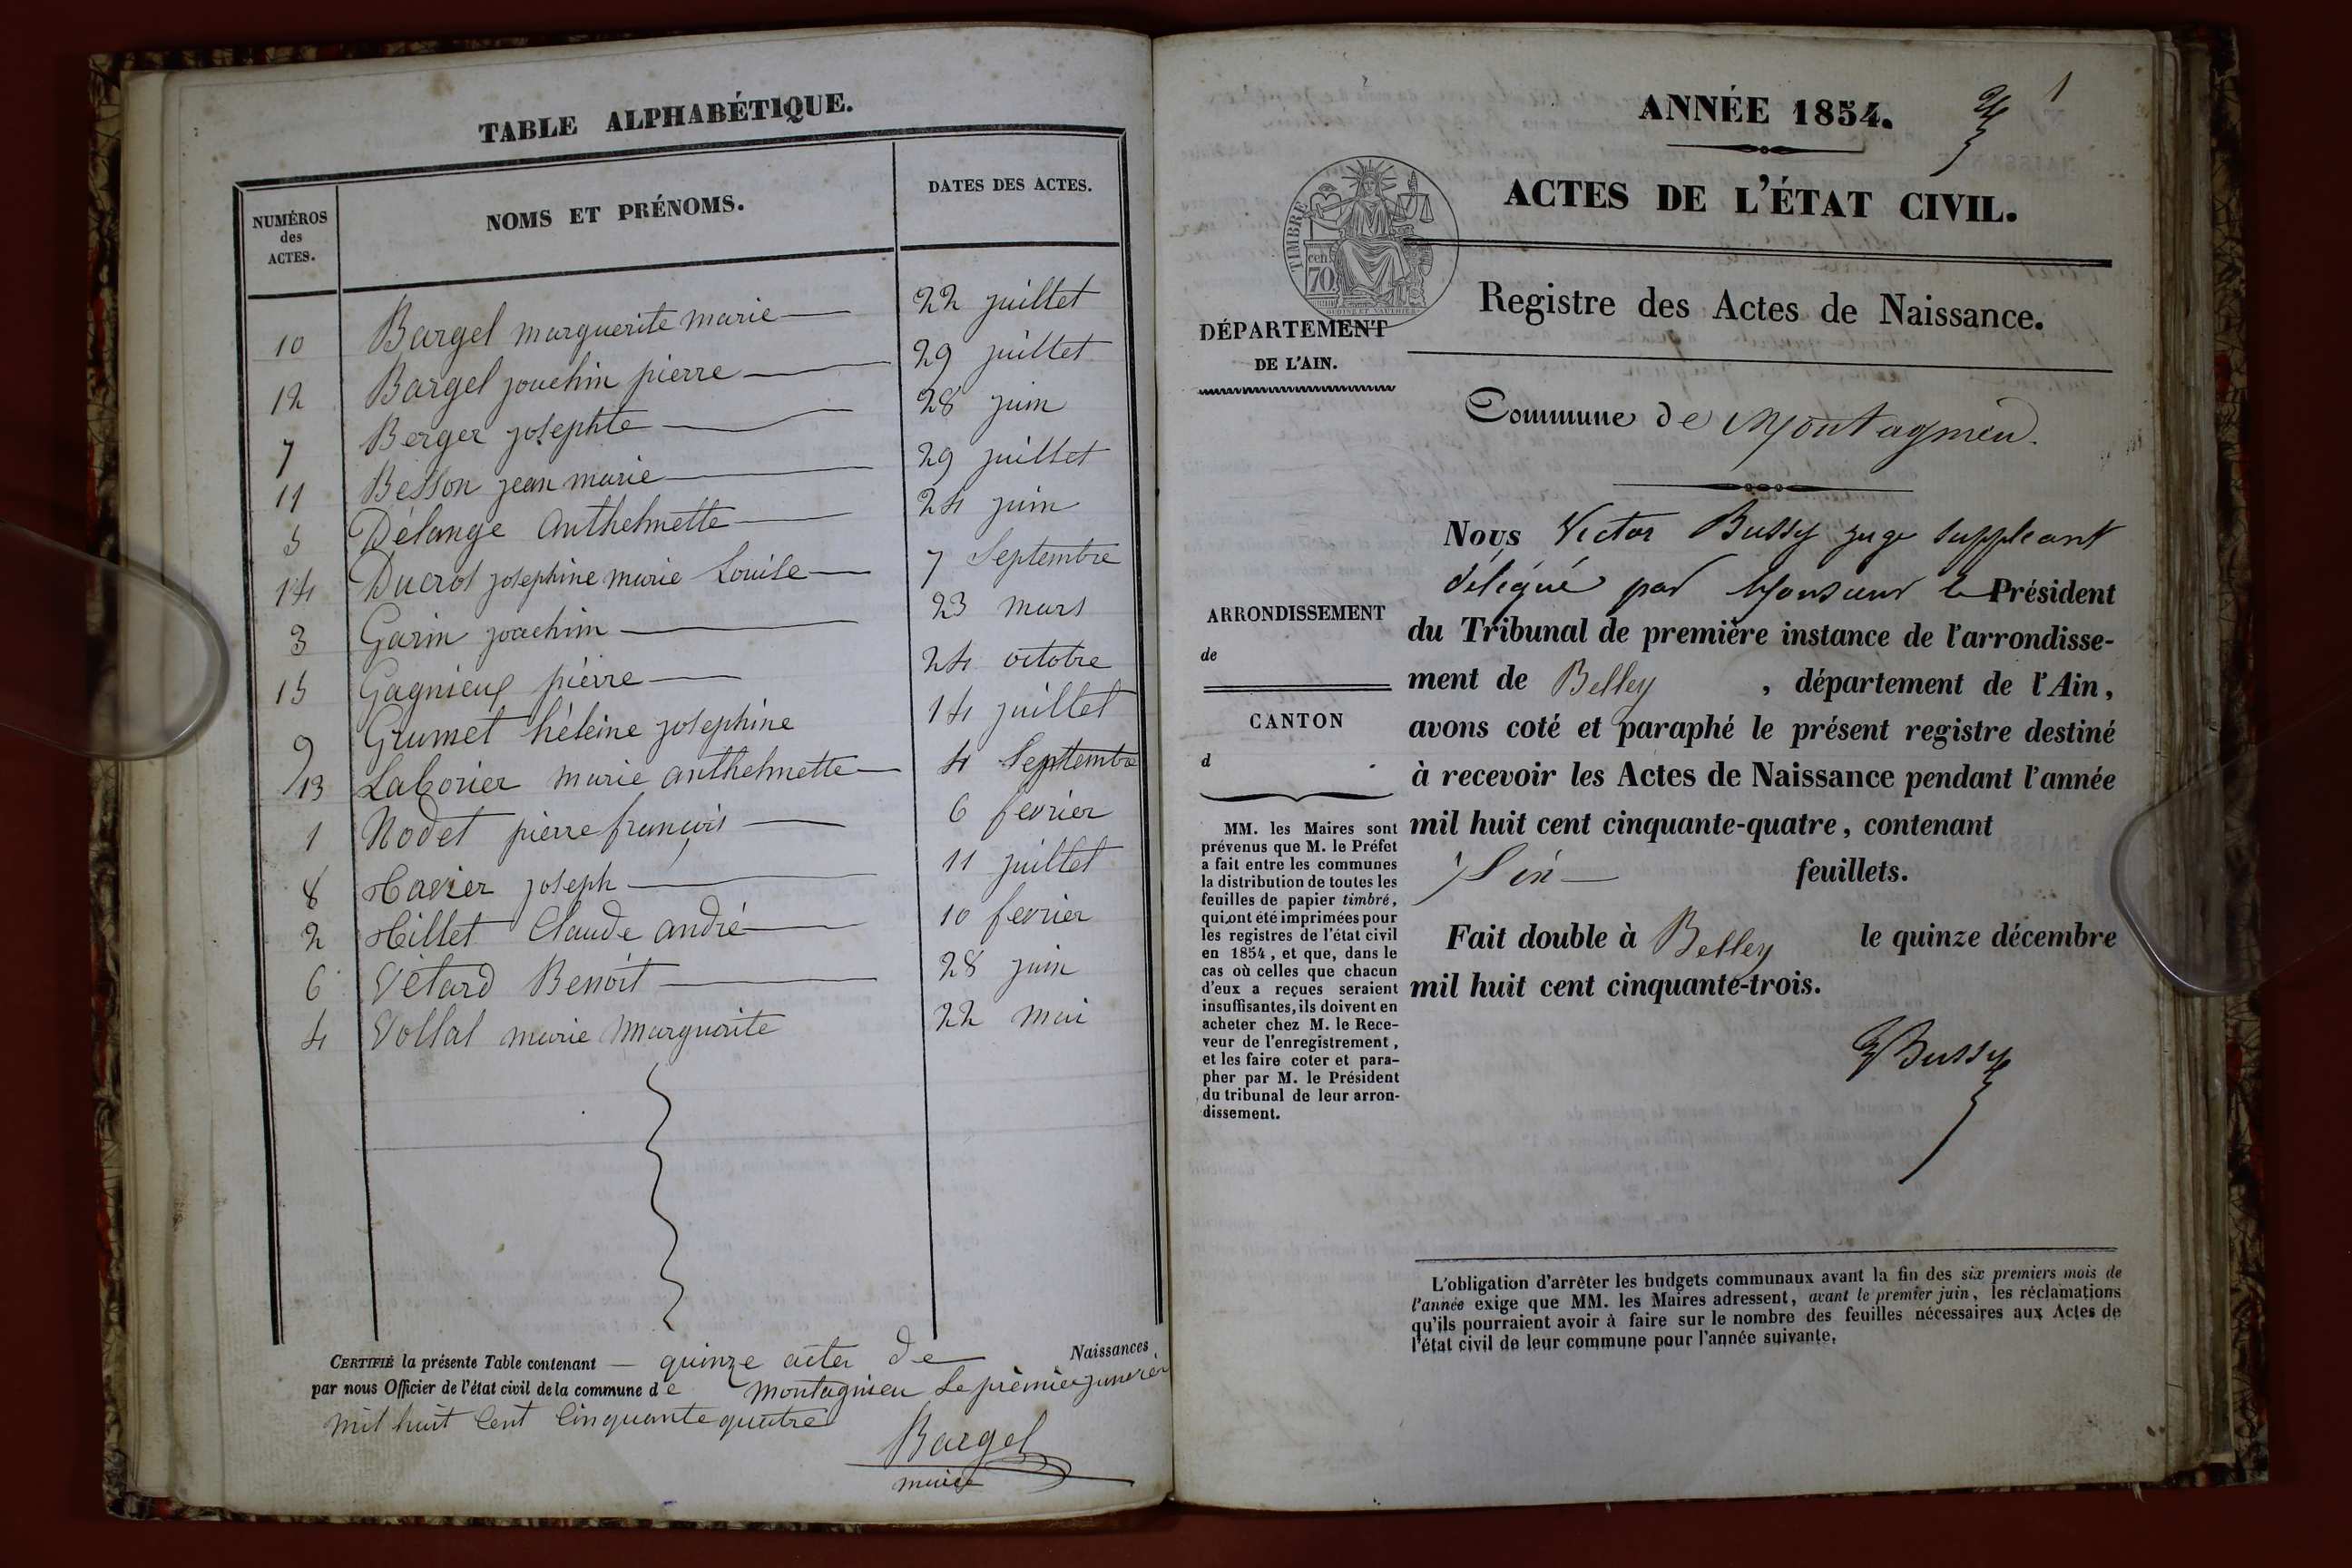 TABLE ALPHABÉTIQUE.
NUMÉROS des ACTES. NOMS ET PRÉNOMS. DATES DES ACTES.
10 Bargel marguerite marie 22 juillet
12 Bargel jouchin pierre 29 juillet
7 Berger josephte 28 juin
11 Besson jean marie 29 juillet
5 Délange Anthelmette 24 juin
14 Ducrot josephine marie Louise 7 Septembre
3 Garin joachim 23 mars
15 Gagnieux pierre 24 octobre
9 Grumet héleine josephine 14 juillet
13 Laborier marie anthelmette 4 Septembre
1 Nodet pierre françois 6 fevrier
8 joseph 11 juillet
2 Claude andré 10 fevrier
6 Vétard Benoit 28 juin
4 Vollat marie Marguerite 22 mai
CERTIFIÉ la présente Table contenant quinze actes de Naissances,
par nous Officier de l'état civil de la commune de montagnieu Le prémier janvier
mil huit Cent Cinquante quatre
Bargel
maire
1
ANNÉE 1854.
ACTES DE L'ÉTAT CIVIL.
TIMBRE
cen
70
Registre des Actes de Naissance.
DÉPARTEMENT
DE L'AIN.
Commune de Montagnieu.
Nous Victor Bussy juge suppleant
délégué par Monsieur le Président
du Tribunal de première instance de l'arrondisse-
ment de Belley, département de l'Ain,
avons coté et paraphé le présent registre destiné
à recevoir les Actes de Naissance pendant l'année
mil huit cent cinquante-quatre, contenant
Six feuillets.
Fait double à Belley le quinze décembre
mil huit cent cinquante-trois.
VBussy
ARRONDISSEMENT
de
CANTON
d
MM. les Maires sont
prévenus que M. le Préfet
a fait entre les communes
la distribution de toutes les
feuilles de papier timbré,
qui ont été imprimées pour
les registres de l'état civil
en 1854, et que, dans le
cas où celles que chacun
d'eux a reçues seraient
insuffisantes, ils doivent en
acheter chez M. le Rece-
veur de l'enregistrement,
et les faire coter et para-
pher par M. le Président
du tribunal de leur arron-
dissement.
L'obligation d'arrêter les budgets communaux avant la fin des six premiers mois de
l'année exige que MM. les Maires adressent, avant le premier juin, les réclamations
qu'ils pourraient avoir à faire sur le nombre des feuilles nécessaires aux Actes de
l'état civil de leur commune pour l'année suivante.